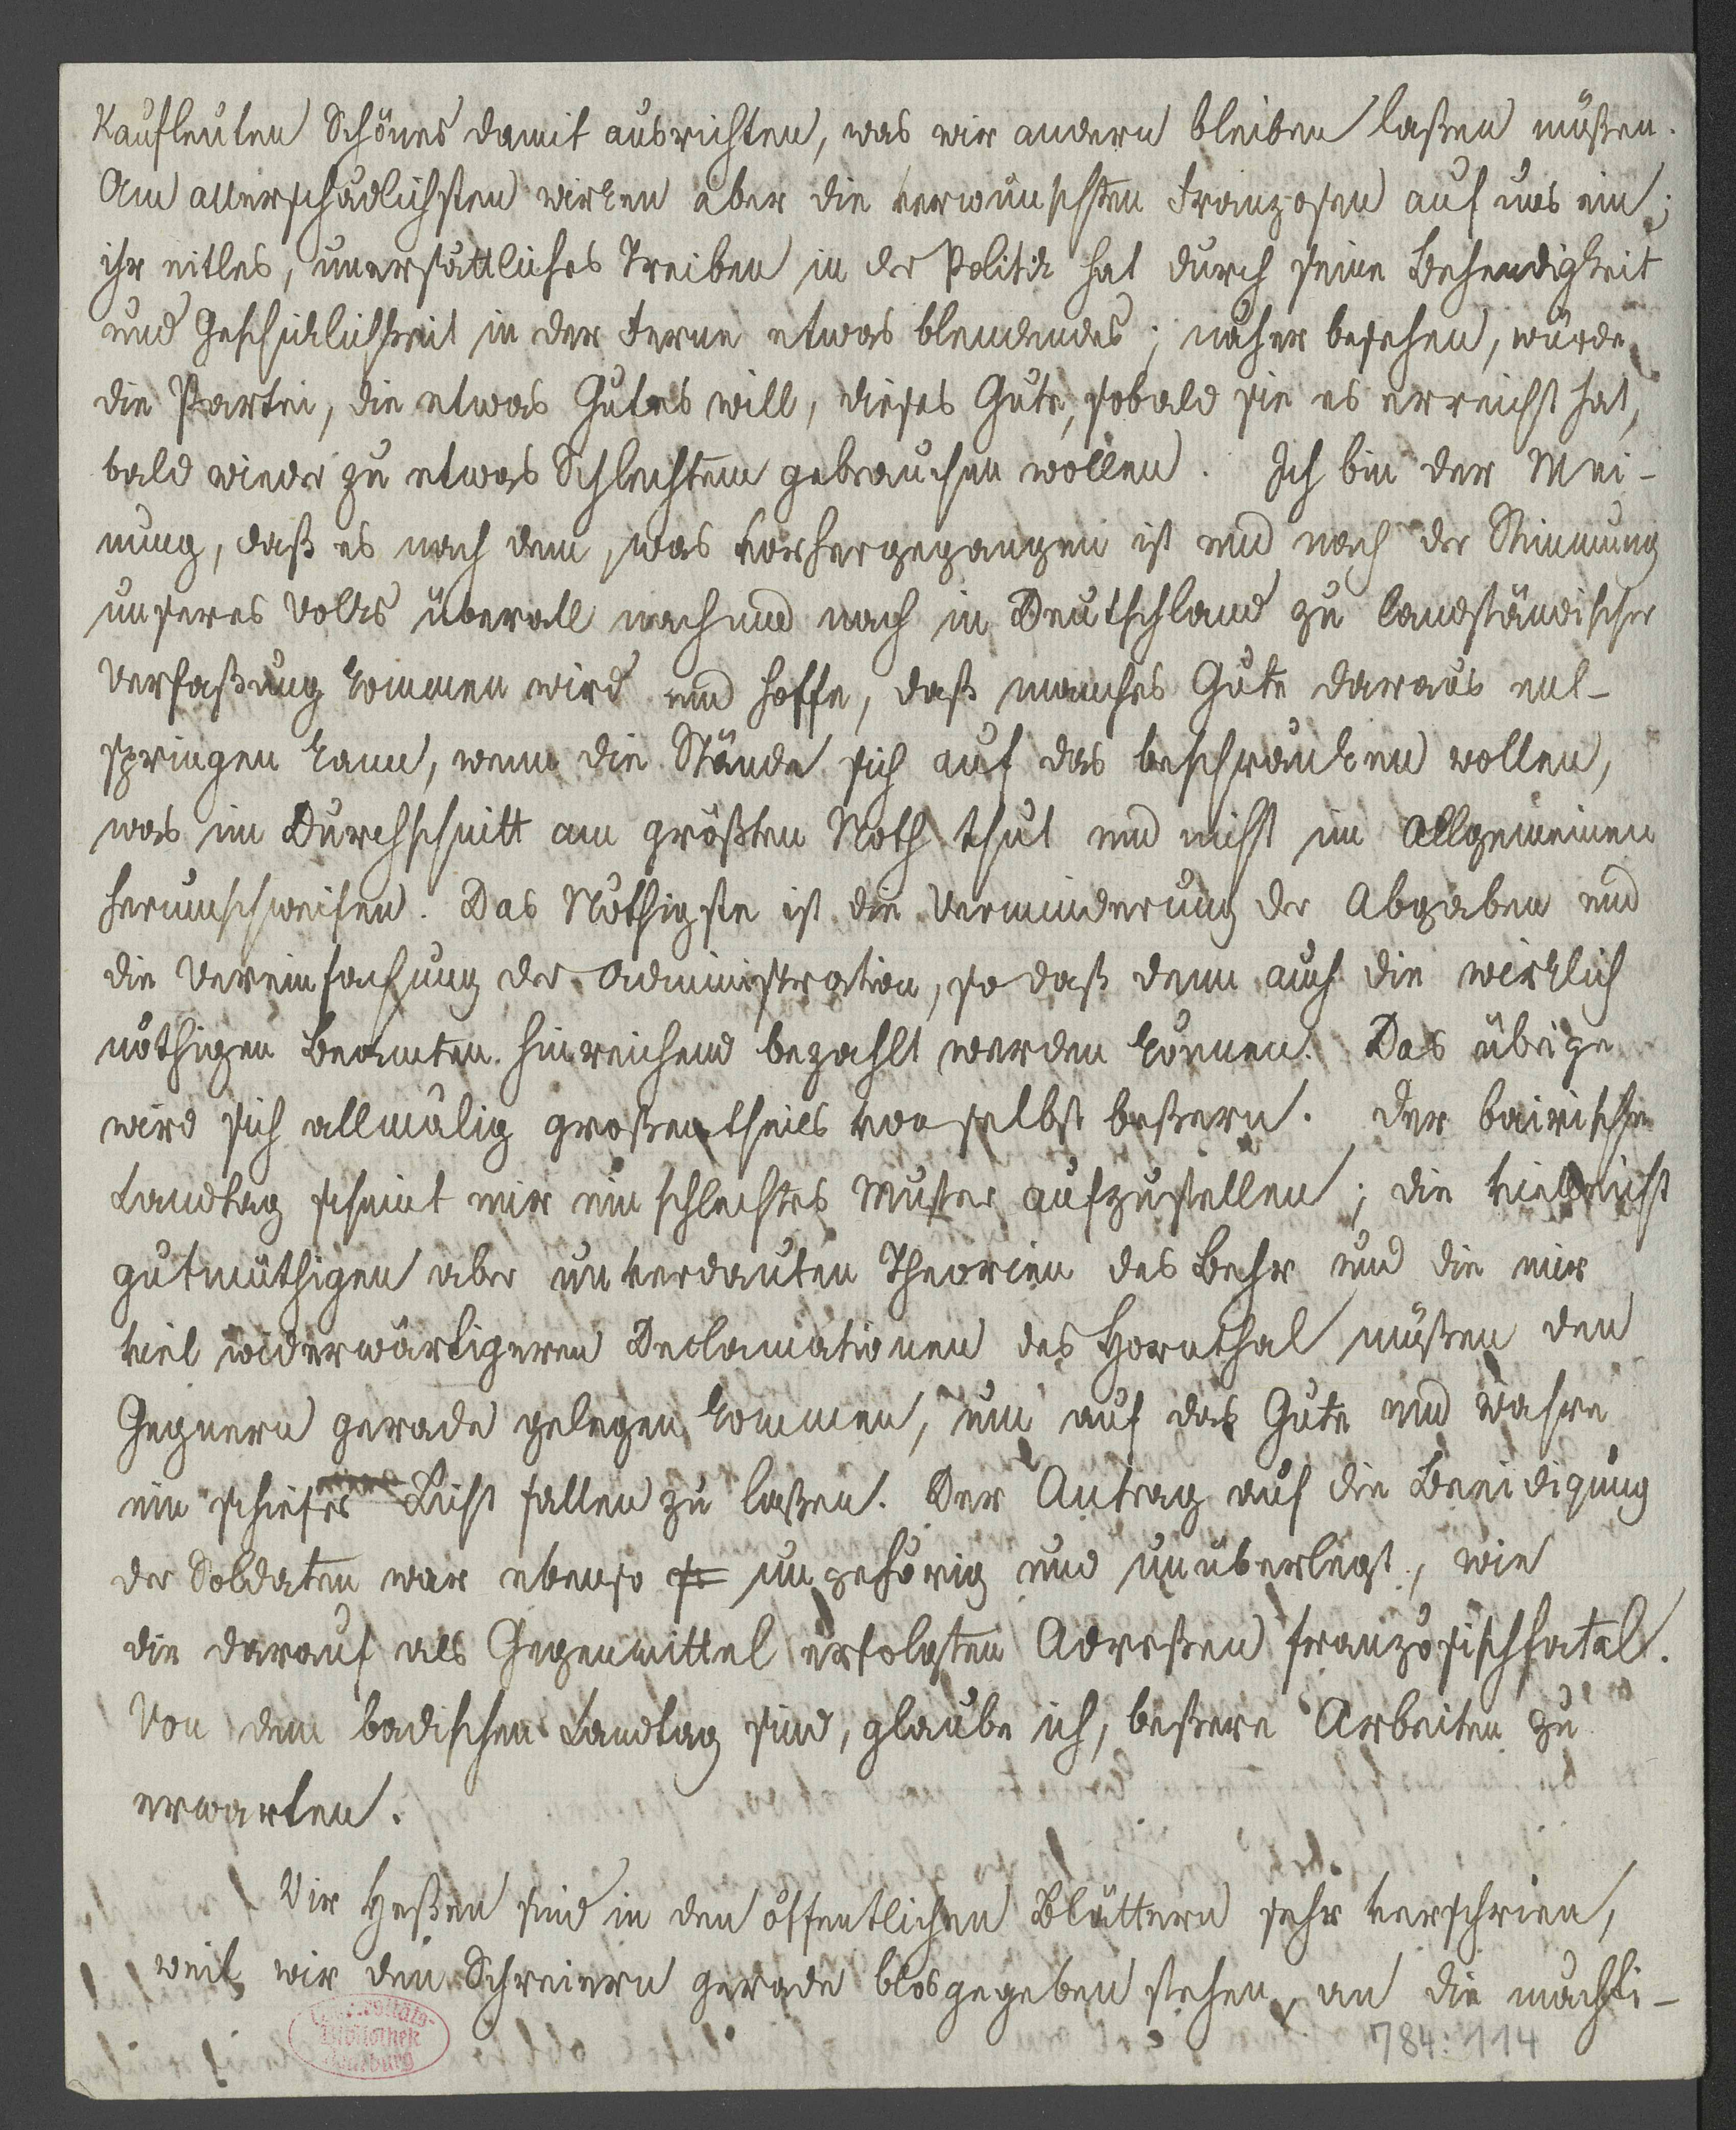 Kaufleuten Schönes damit ausrichten, was wir andern bleiben laßen müßen.
Am allerschädlichsten wirken aber die verwünschten Franzosen auf uns ein;
ihr eitles, unersättliches Treiben in der Politik hat durch seine Behendigkeit
und Geschicklichkeit in der Ferne etwas blendendes; näher besehen, würde
die Partei, die etwas Gutes will, dieses Gute, sobald sie es erreicht hat,
bald wieder zu etwas Schlechtem gebrauchen wollen. Ich bin der Mei-
nung, daß es nach dem, was vorhergegangen ist und nach der Stimmung
unseres Volks überall nach und nach in Deutschland zu landständischer
Verfaßung kommen wird und hoffe, daß manches Gute daraus ent-
springen kann, wenn die Stände sich auf das beschränken wollen,
was im Durchschnitt am größten Noth thut und nicht im Allgemeinen
herumschweifen. Das Nöthigste ist die Verminderung der Abgaben und
die Vereinfachung der Administration, so daß dann auch die wirklich
nöthigen Beamten hinreichend bezahlt werden können. Das übrige
wird sich allmälig großentheils von selbst beßern. Der bairische
Landtag scheint mir ein schlechtes Muster aufzustellen; die vielleicht
gutmüthigen aber unverdauten Theorien des Behr und die mir
viel widerwärtigeren Declamationen des Hornthal müßen den
Gegnern gerade gelegen kommen, um auf das Gute und Wahre
ein schiefes Licht fallen zu laßen. Der Antrag auf die Beeidigung
der Soldaten war ebenso so ungehörig und unüberlegt, wie
die darauf als Gegenmittel erfolgten Adreßen französischfatal.
Von dem badischen Landtag sind, glaube ich, beßere Arbeiten zu
erwarten.
Wir Heßen sind in den öffentlichen Blättern sehr verschrien,
weil wir den Schreiern gerade blosgegeben stehen, an die mächti-
Bibliothek
784:114